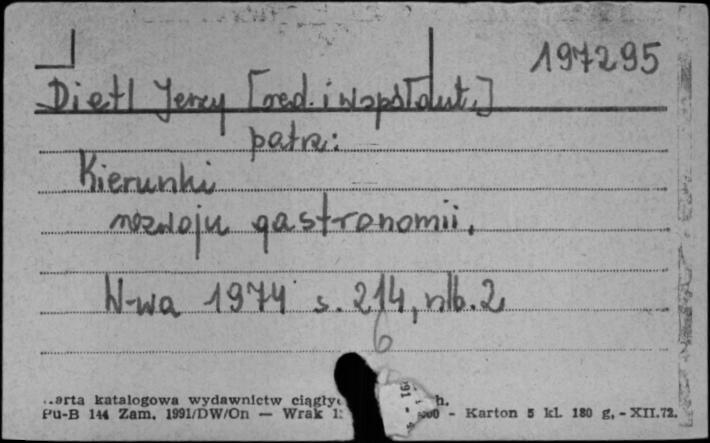 197295
Dietl Jerzy [red. i współaut.]
patrz:
Kierunki
rozwoju gastronomii.
W-wa 1974 s. 214, nlb. 2
6
arta katalogowa wydawnictw ciągły h.
Pu-B 144 Zam. 1991/DW/On — Wrak 1 000 - Karton 5 kl. 180 g, - XII.72.